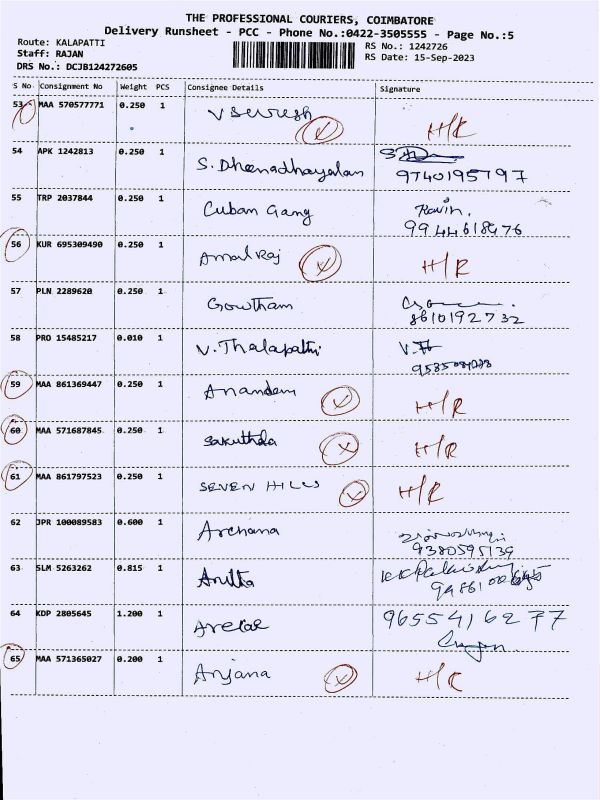 THE PROFESSIONAL COURIERS, COIMBATORE
Delivery Runsheet - PCC - Phone No.:0422-3505555 - Page No.:5
Route: KALAPATTI
RS No.: 1242726
Staff: RAJAN
RS Date: 15-Sep-2023
DRS No.: DCJB124272605
S No Consignment No Weight PCS Consignee Details Signature
53 MAA 570577771 0.250 1 V Suresh H/R
54 APK 1242813 0.250 1 S. Dheenadhayalan
9740195797
55 TRP 2037844 0.250 1 Cuban Gang Ravin.
9944618476
56 KUR 695309490 0.250 1 Amal Raj H/R
57 PLN 2289620 0.250 1 Gowtham
8610192732
58 PRO 15485217 0.010 1 V. Thalapathi
59 MAA 861369447 0.250 1 Anandem H/R
60 MAA 571687845 0.250 1 Sakuthala H/R
61 MAA 861797523 0.250 1 SEVEN HILLS H/R
62 JPR 100089583 0.600 1 Archana
9380595139
63 SLM 5263262 0.815 1 Anitta
64 KDP 2805645 1.200 1 9655416277
65 MAA 571365027 0.200 1 Anjana H/R